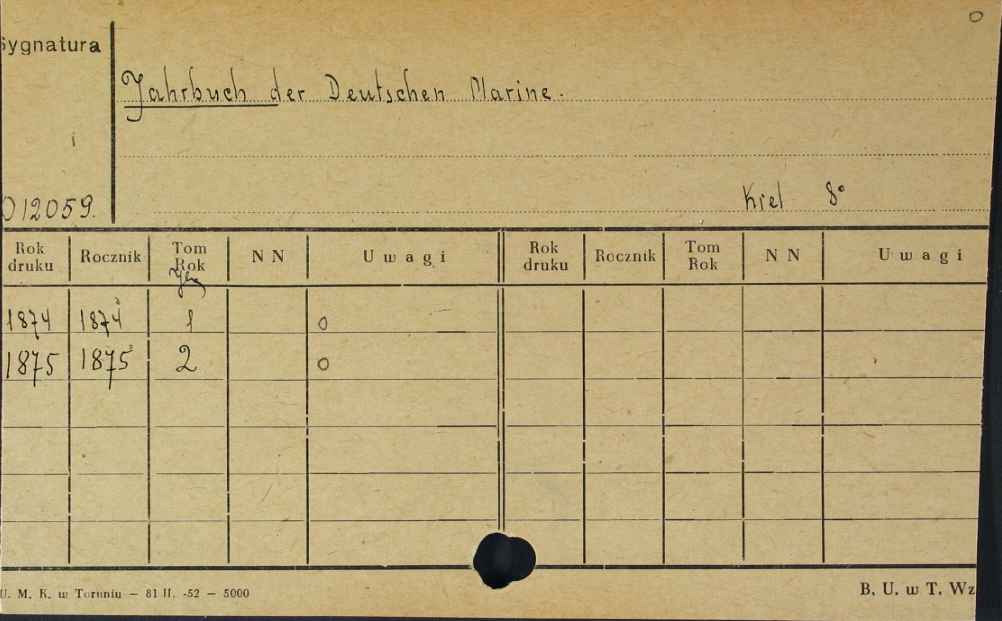 Sygnatura
Jahrbuch der Deutschen Marine.
012059.
Kiel 8°
Rok druku Rocznik Tom Rok N N Uwagi Rok druku Rocznik Tom Rok N N Uwagi
1874 1874 1 o
1875 1875 2 o
U. M. K. w Toruniu — 81 II. -52 — 5000
B. U. w T. Wz